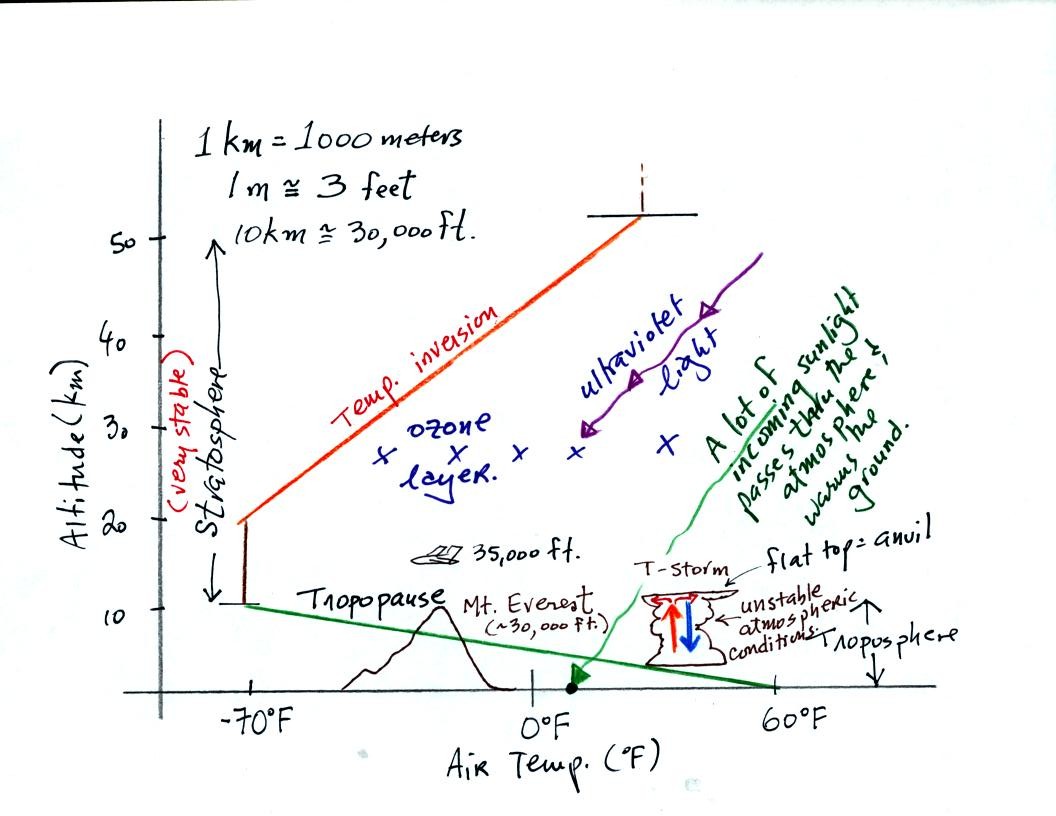 1 km = 1000 meters
1 m ≅ 3 feet
10km ≅ 30,000 ft.
50
40
30
20
10
Altitude (km)
(very stable)
Stratosphere
Temp. inversion
ultraviolet
light
ozone
layer.
A lot of
incoming sunlight
passes thru the
atmosphere &
warms the
ground.
35,000 ft.
T-storm
flat top = anvil
Tropopause
Mt. Everest
(~30,000 ft.)
unstable
atmospheric
conditions.
Troposphere
-70°F
0°F
60°F
Air Temp. (°F)